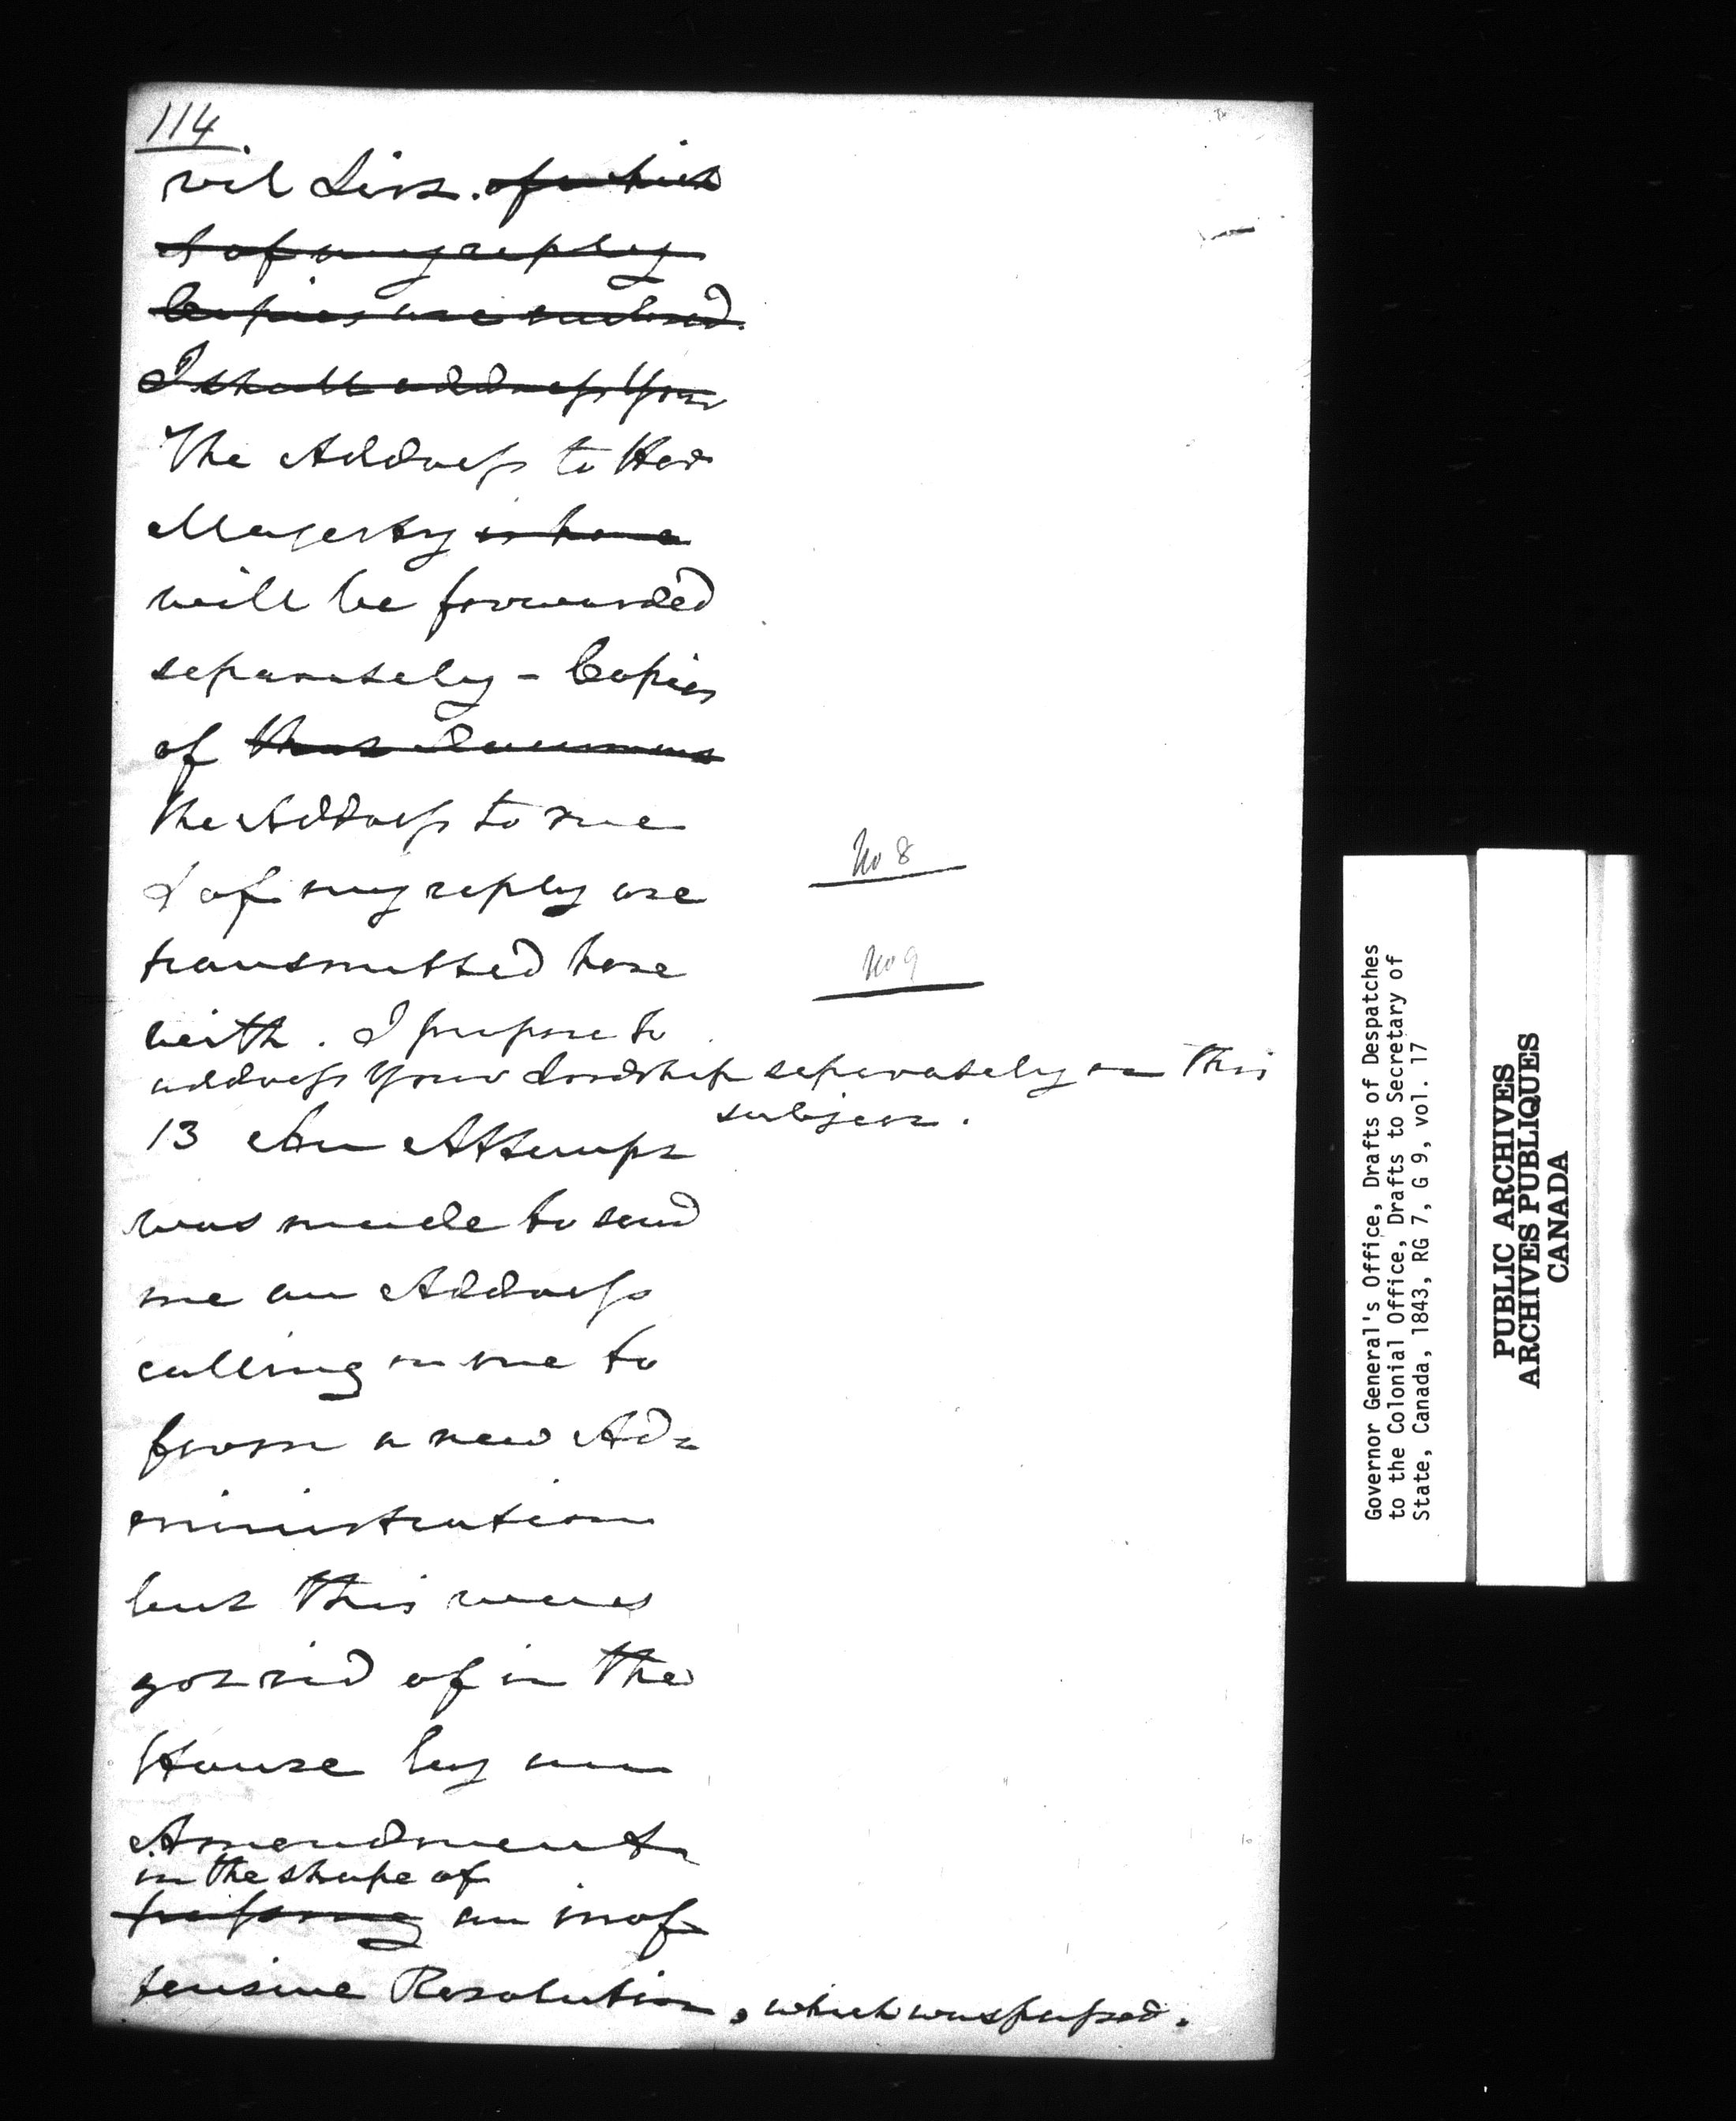 114
vil List. of which
& of my reply
Copies are enclosed.
I shall address Your
The Address to Her
Majesty is here
will be forwarded
separately - Copies
of that Document
the Address to me
No 8
& of my reply are
transmitted here
No 9
with. I propose to
address Your Lordship separately on this
subject.
13 An Attempt
was made to send
me an Address
calling on me to
form a new Ad=
ministration
but this was
got rid of in the
House by an
Amendment
in the shape of
passing an inof
fensive Resolution, which was passed.
Governor General's Office, Drafts of Despatches
to the Colonial Office, Drafts to Secretary of
State, Canada, 1843, RG 7, G 9, vol. 17
PUBLIC ARCHIVES
ARCHIVES PUBLIQUES
CANADA